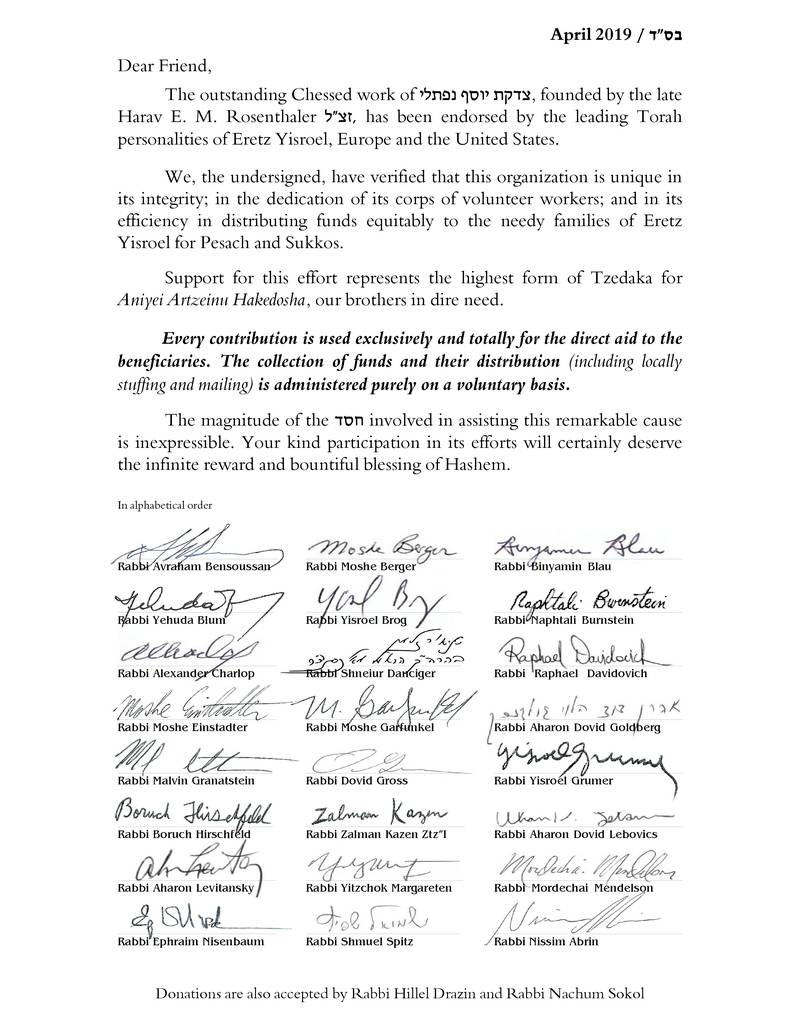 April 2019 / בס"ד
Dear Friend,
The outstanding Chessed work of צדקת יוסף נפתלי, founded by the late
Harav E. M. Rosenthaler זצ"ל, has been endorsed by the leading Torah
personalities of Eretz Yisroel, Europe and the United States.
We, the undersigned, have verified that this organization is unique in
its integrity; in the dedication of its corps of volunteer workers; and in its
efficiency in distributing funds equitably to the needy families of Eretz
Yisroel for Pesach and Sukkos.
Support for this effort represents the highest form of Tzedaka for
Aniyei Artzeinu Hakedosha, our brothers in dire need.
Every contribution is used exclusively and totally for the direct aid to the
beneficiaries. The collection of funds and their distribution (including locally
stuffing and mailing) is administered purely on a voluntary basis.
The magnitude of the חסד involved in assisting this remarkable cause
is inexpressible. Your kind participation in its efforts will certainly deserve
the infinite reward and bountiful blessing of Hashem.
In alphabetical order
Moshe Berger Binyamin Blau
Rabbi Avraham Bensoussan Rabbi Moshe Berger Rabbi Binyamin Blau
Naphtali Burnstein
Rabbi Yehuda Blum Rabbi Yisroel Brog Rabbi Naphtali Burnstein
Raphael Davidovich
Rabbi Alexander Charlop Rabbi Shneiur Danciger Rabbi Raphael Davidovich
Moshe Einstadter M. Garfunkel
Rabbi Moshe Einstadter Rabbi Moshe Garfunkel Rabbi Aharon Dovid Goldberg
Yisroel Grumer
Rabbi Malvin Granatstein Rabbi Dovid Gross Rabbi Yisroel Grumer
Boruch Hirschfeld Zalman Kazen
Rabbi Boruch Hirschfeld Rabbi Zalman Kazen Ztz"l Rabbi Aharon Dovid Lebovics
Mordechai Mendelson
Rabbi Aharon Levitansky Rabbi Yitzchok Margareten Rabbi Mordechai Mendelson
Rabbi Ephraim Nisenbaum Rabbi Shmuel Spitz Rabbi Nissim Abrin
Donations are also accepted by Rabbi Hillel Drazin and Rabbi Nachum Sokol